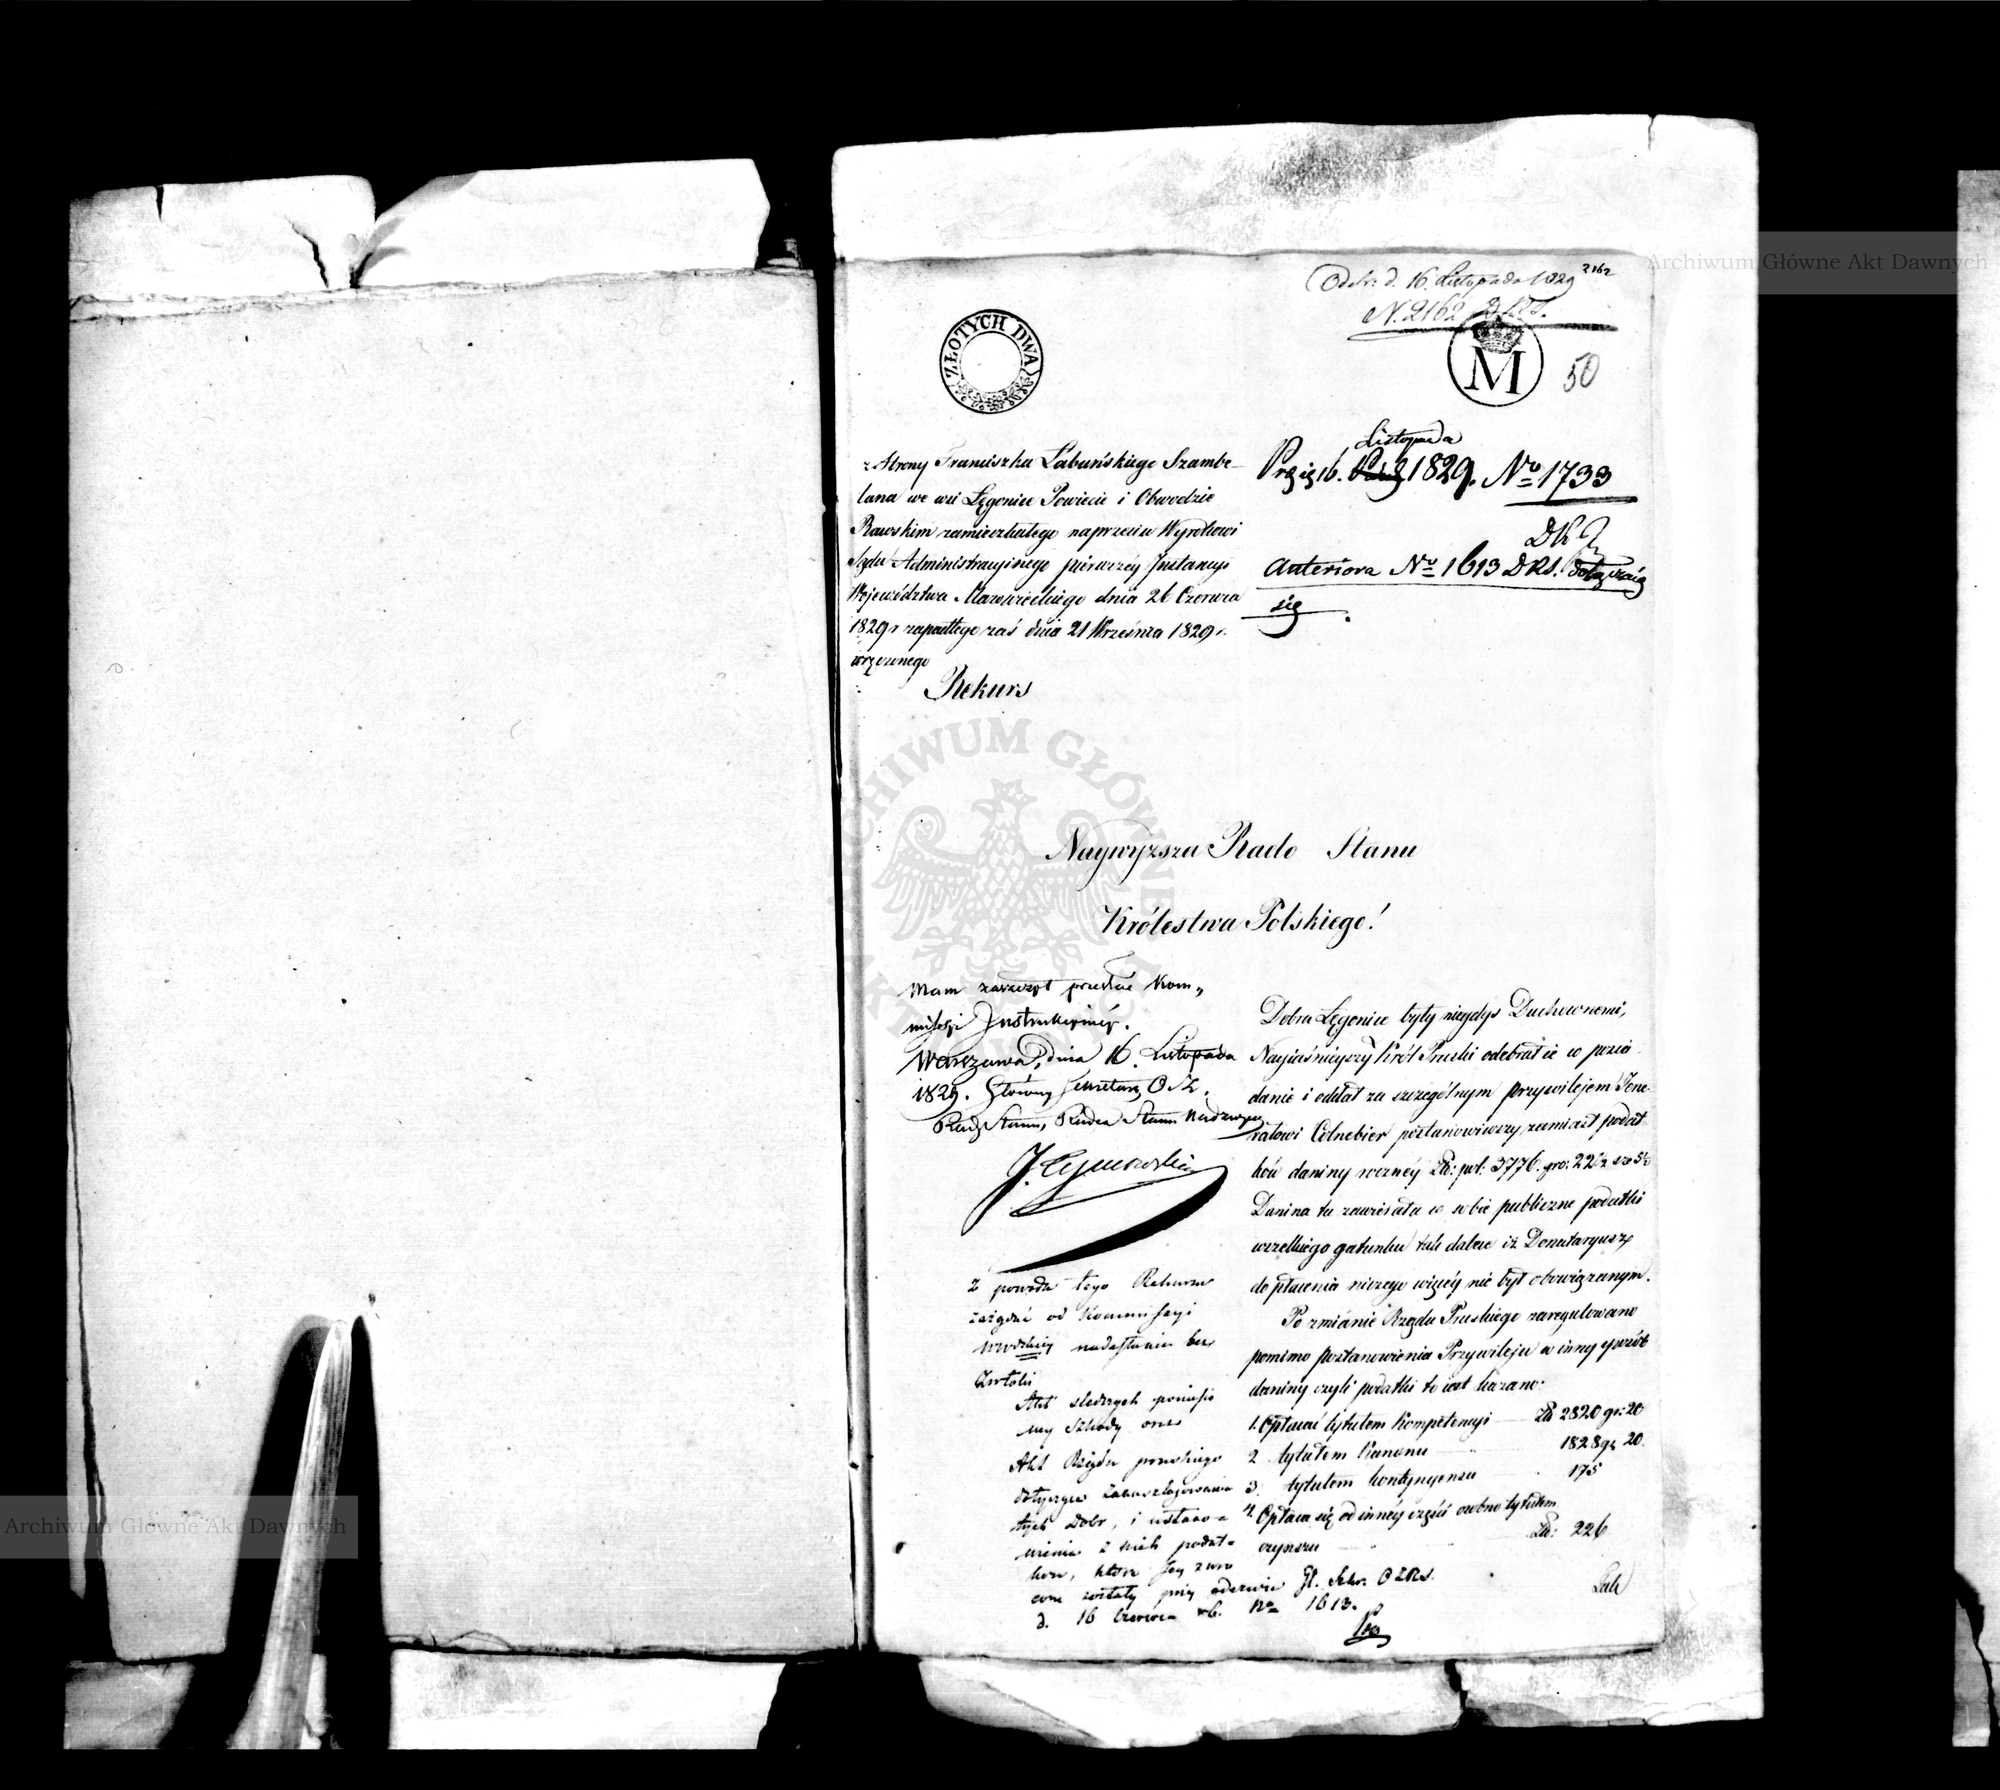 Odebr: d. 16. Listopada 1829 2162
N. 2162 D.K.S.
ZŁOTYCH DWA
M
50
z Strony Franciszka Łabuńskiego Szambe-
lana we wsi Łęgonice Powiecie i Obwodzie
Rawskim zamieszkałego naprzeciw Wyrokowi
Sądu Administracyinego pierwszéy Instancyi
Wojewódstwa Mazowieckiego dnia 26 Czerwca
1829 r zapadłego zaś dnia 21 Września 1829 r.
wręczonego
Rekurs
Listopada
16. 1829. No 1733
Anteriora No 1613 DKS. dołączaią
się
Naywyższa Rado Stanu
Królestwa Polskiego!
Mam zaszczyt przesłać Kom„
missyi Instrukcyinéy.
Warszawa, dnia 16. Listopada
1829. Główny Sekretarz
Rady Stanu, Radca Stanu Nadzwycz
J. Tymowski
Z powodu tego Rekursu
zażądać od Kommissyi
nadesłania bez
Zwłoki
Akt śledczych
szkody
Akt Rządu pruskiego
dotyczące
tych Dobr, i ustano-
wienia z nich podat-
ków, które Jey zwró
cone zostały przy odezwie Gł. Sekr:
d. 16 Czerwca rb. No 1613.
Dobra Łęgonice były niegdyś Duchownemi,
Nayiaśnieyszy Król Pruski odebrał ie w posia
danie i oddał za szczególnym przywilejem Jene-
rałowi postanowiwszy zamiast podat
ków daniny roczney Złt: pol: 3776. gro: 22½
Danina ta zawierała w sobie publiczne podatki
wszelkiego gatunku tak dalece iż Donataryusz
do płacenia niczego więcéy nie był obowiązanym.
Po zmianie Rządu Pruskiego zaregulowano
pomimo postanowienia Przywileju w inny sposób
daniny czyli podatki to iest kazano:
1. Opłacać tytułem Kompetencyi Zł 2820 gr: 20
2 tytułem Kanonu 1828 gr 20.
3. tytułem kontyngensu 175
4. Opłaca się od innéy części osobno tytułem
czynszu Zł: 226
Archiwum Główne Akt Dawnych
Archiwum Główne Akt Dawnych